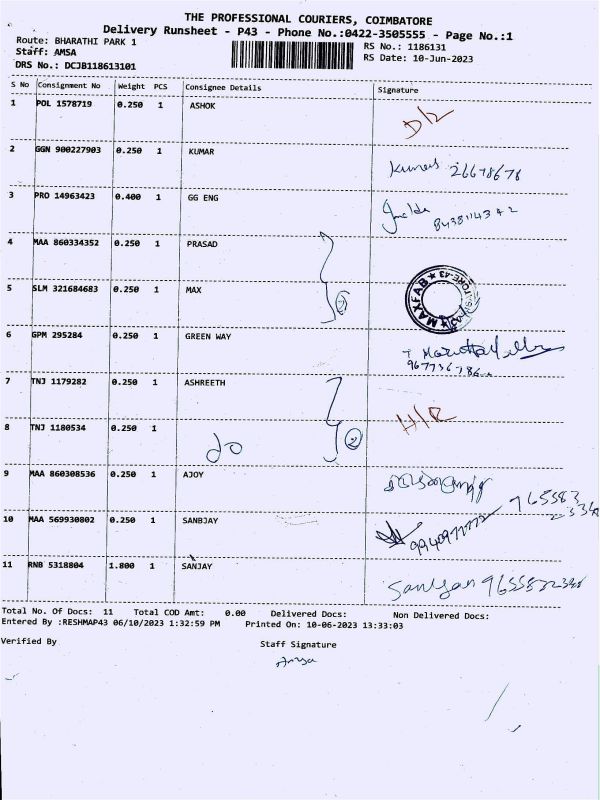 THE PROFESSIONAL COURIERS, COIMBATORE
Delivery Runsheet - P43 - Phone No.:0422-3505555 - Page No.:1
Route: BHARATHI PARK 1
Staff: AMSA
DRS No.: DCJB118613101
RS No.: 1186131
RS Date: 10-Jun-2023
S No Consignment No Weight PCS Consignee Details Signature
1 POL 1578719 0.250 1 ASHOK
D/L
2 GGN 900227903 0.250 1 KUMAR
Kumar 26678678
3 PRO 14963423 0.400 1 GG ENG
4 MAA 860334352 0.250 1 PRASAD
5 SLM 321684683 0.250 1 MAX
MAXFAB
6 GPM 295284 0.250 1 GREEN WAY
7 TNJ 1179282 0.250 1 ASHREETH
H/R
8 TNJ 1180534 0.250 1
do 2
9 MAA 860308536 0.250 1 AJOY
10 MAA 569930802 0.250 1 SANBJAY
11 RNB 5318804 1.800 1 SANJAY
Total No. Of Docs: 11 Total COD Amt: 0.00 Delivered Docs: Non Delivered Docs:
Entered By :RESHMAP43 06/10/2023 1:32:59 PM Printed On: 10-06-2023 13:33:03
Verified By Staff Signature
Amsa